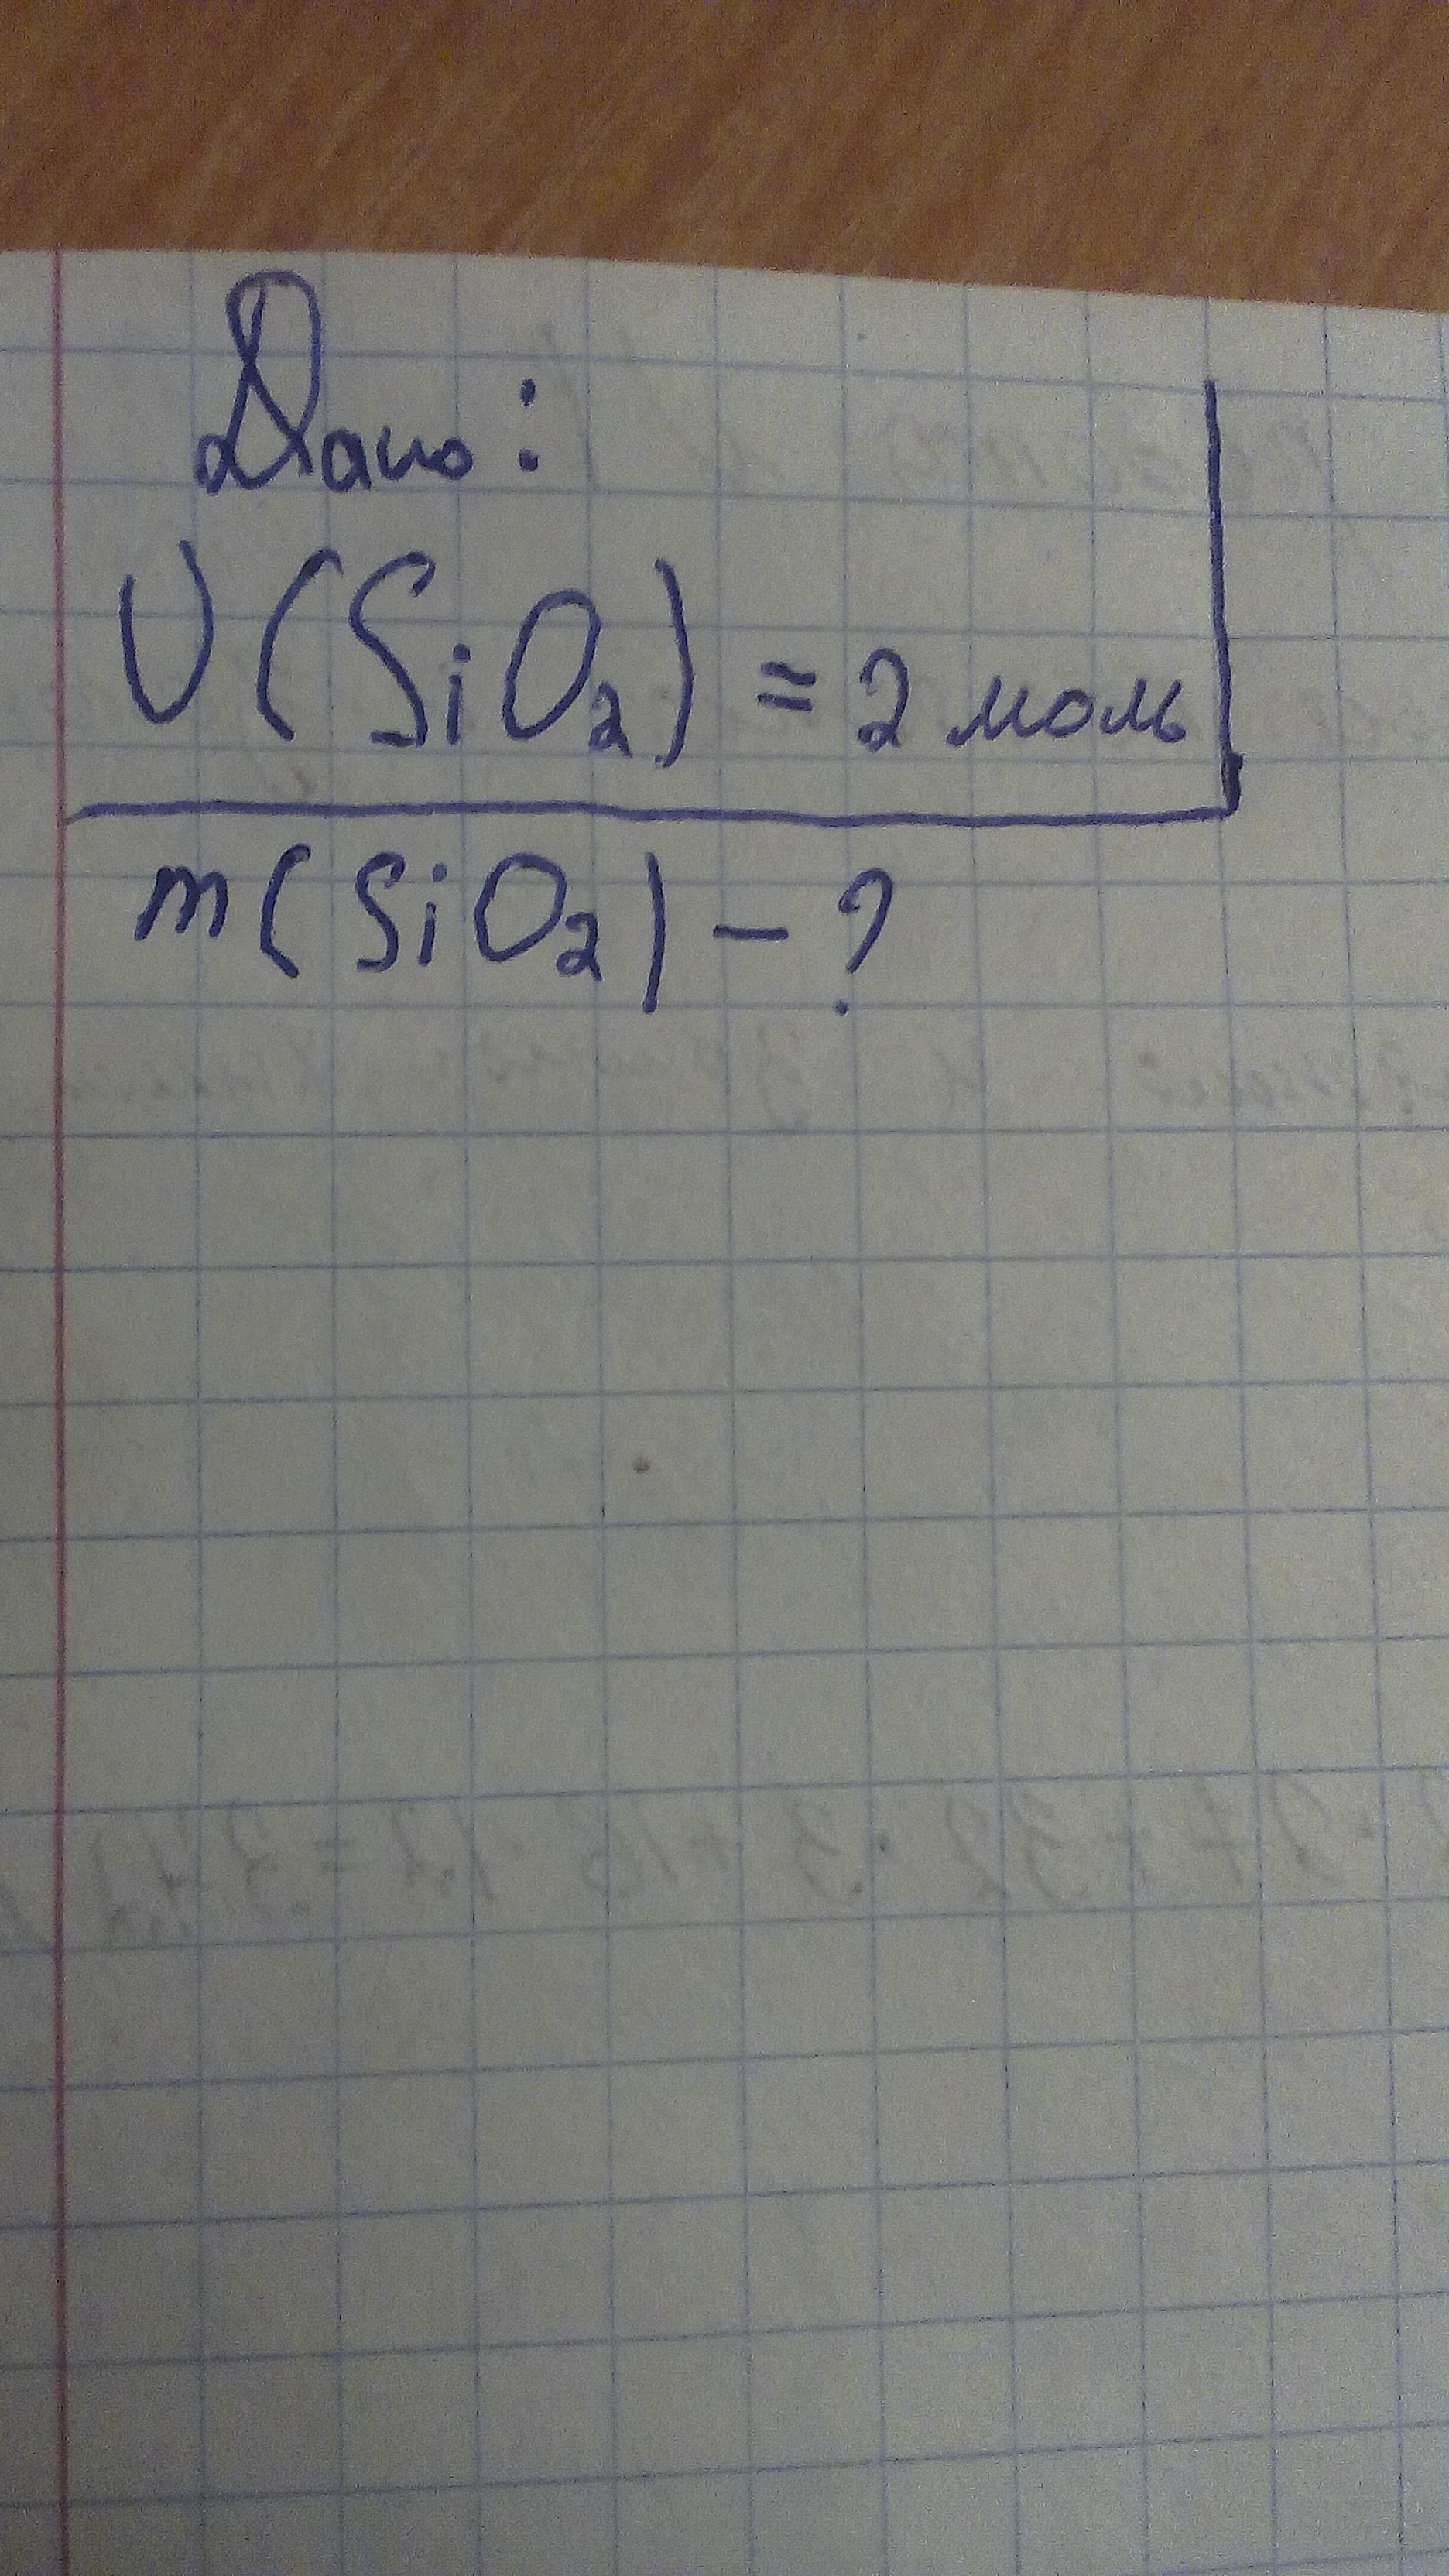 Дано:
υ(SiO₂) = 2 моль
m(SiO₂) - ?